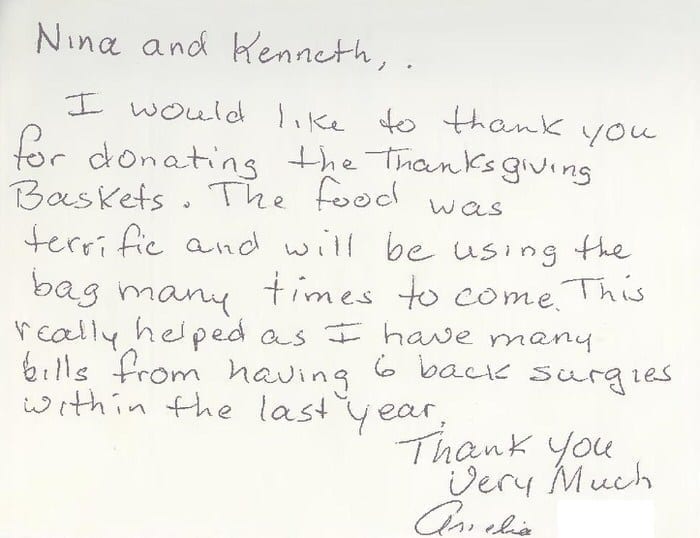 Nina and Kenneth, .
I would like to thank you
for donating the Thanksgiving
Baskets. The food was
terrific and will be using the
bag many times to come. This
really helped as I have many
bills from having 6 back surgies
within the last year.
Thank you
Very Much
Amelia